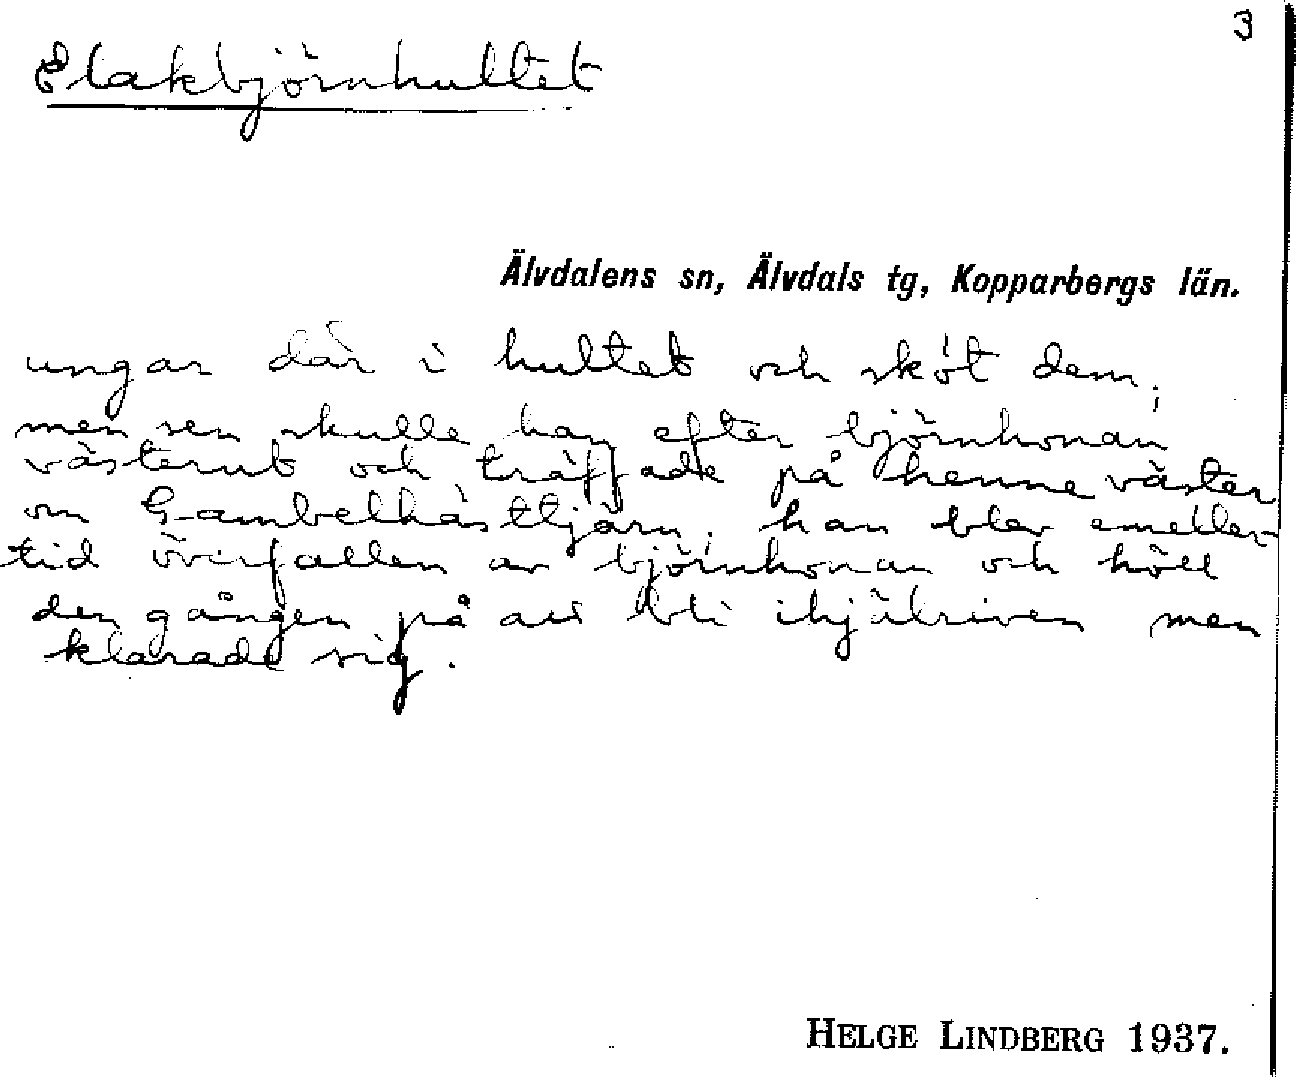 3
Elakbjörnhultet
Älvdalens sn, Älvdals tg, Kopparbergs län.
ungar där i hultet och sköt dem;
men sen skulle han efter björnhonan
västerut och träffade på henne väster
om Gambelhästtjärn; han blev emeller-
tid överfallen av björnhonan och höll
den gången på att bli ihjälriven men
klarade sig.
HELGE LINDBERG 1937.